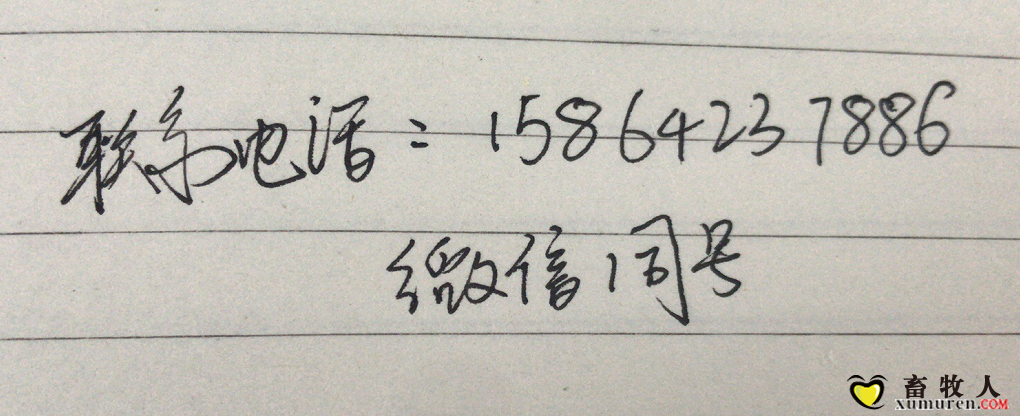 联系电话：15864237886
微信同号
畜牧人
xumuren.COM